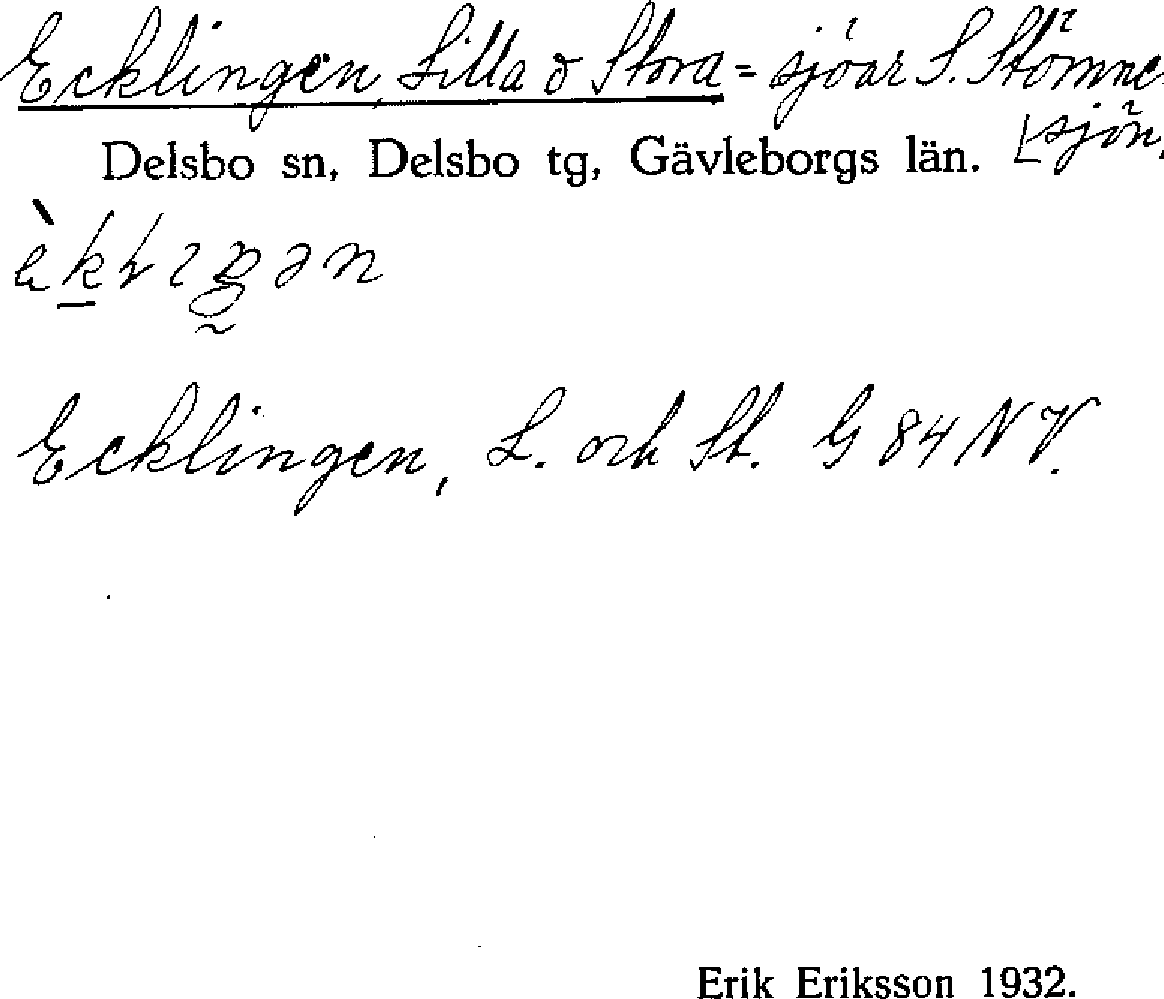 Ecklingen, Lilla o Stora = sjöar S. Stömne-
[sjön.
Delsbo sn, Delsbo tg, Gävleborgs län.
Ecklingen, L. och St. G 84 NV.
Erik Eriksson 1932.